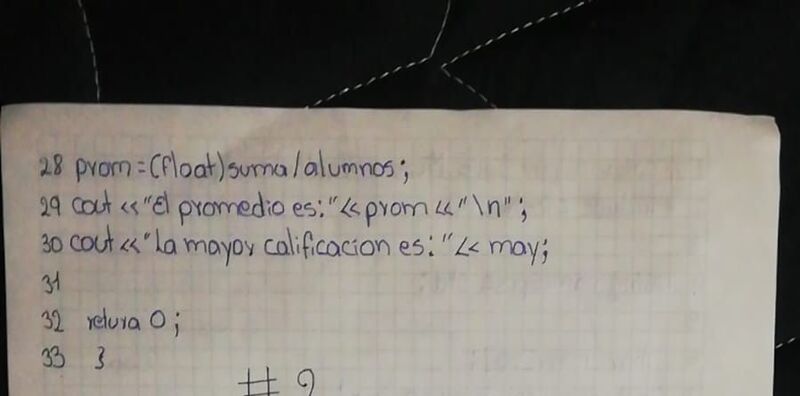 28 prom=(float)suma/alumnos;
29 cout <<"El promedio es:"<<prom<<"\n";
30 cout <<"La mayor calificacion es:"<< may;
31
32 retura 0;
33 }
# 2